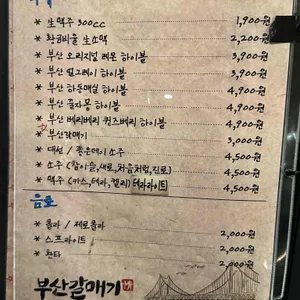 * 生맥주 300cc 1,900원
* 황금비율 生소맥 2,200원
* 부산 오리지널 레몬 하이볼 3,900원
* 부산 얼그레이 하이볼 3,900원
* 부산 하동매실 하이볼 4,900원
* 부산 꿀자몽 하이볼 4,900원
* 부산 베리베리 퀸즈베리 하이볼 4,900원
* 부산갈매기 3,000원
* 대선 / 좋은데이 소주 4,500원
* 소주 (참이슬,새로,처음처럼,진로) 4,500원
* 맥주 (카스,테라,켈리) 테라라이트 4,500원
음료
* 콜라 / 제로콜라 2,000원
* 스프라이트 2,000원
* 환타 2,000원
부산갈매기